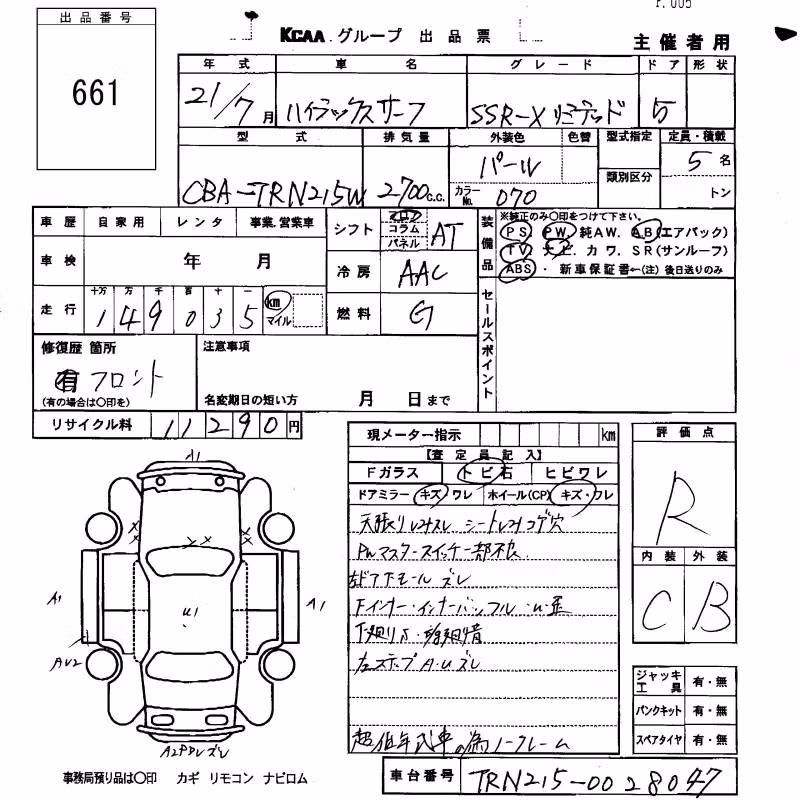 P. 005
出品番号
661
KCAA.グループ 出品票
主催者用
年式 車名 グレード ドア 形状
21/7月 ハイラックスサーフ SSR-X リミテッド 5
型式 排気量 外装色 色替 型式指定 定員・積載
CBA-TRN215W 2700c.c. パール 類別区分 5名
カラーNo. 070 トン
車歴 自家用 レンタ 事業.営業車
シフト フロア コラム パネル AT
装備品 ※純正のみ○印をつけて下さい。
PS PW 純AW. AB(エアバック)
TV 天上. カワ. SR(サンルーフ)
ABS・ 新車保証書←(注) 後日送りのみ
車検 年 月
冷房 AAC
走行 十万 万 千 百 十 一
149035 km マイル
燃料 G
セールスポイント
修復歴 箇所
有 フロント
(有の場合は○印を)
注意事項
名変期日の短い方 月 日まで
リサイクル料 11290円
現メーター指示 km
【査定員記入】
Fガラス トビ石 ヒビワレ
ドアミラー キズ ワレ ホイール(CP) キズ・ワレ
天張りレミスレ シートレミコゲ穴
PWマスタースイッチ一部不良
左ドア下モール ズレ
Fインナー・インナーバッフル
下廻りS・
左ステップA・Uズレ
超低年式車の為ノークレーム
評価点
R
内装 外装
C B
ジャッキ工具 有・無
パンクキット 有・無
スペアタイヤ 有・無
A1
A1
U1
A1
AU2
事務局預り品は○印 カギ リモコン ナビロム
車台番号 TRN215-0028047